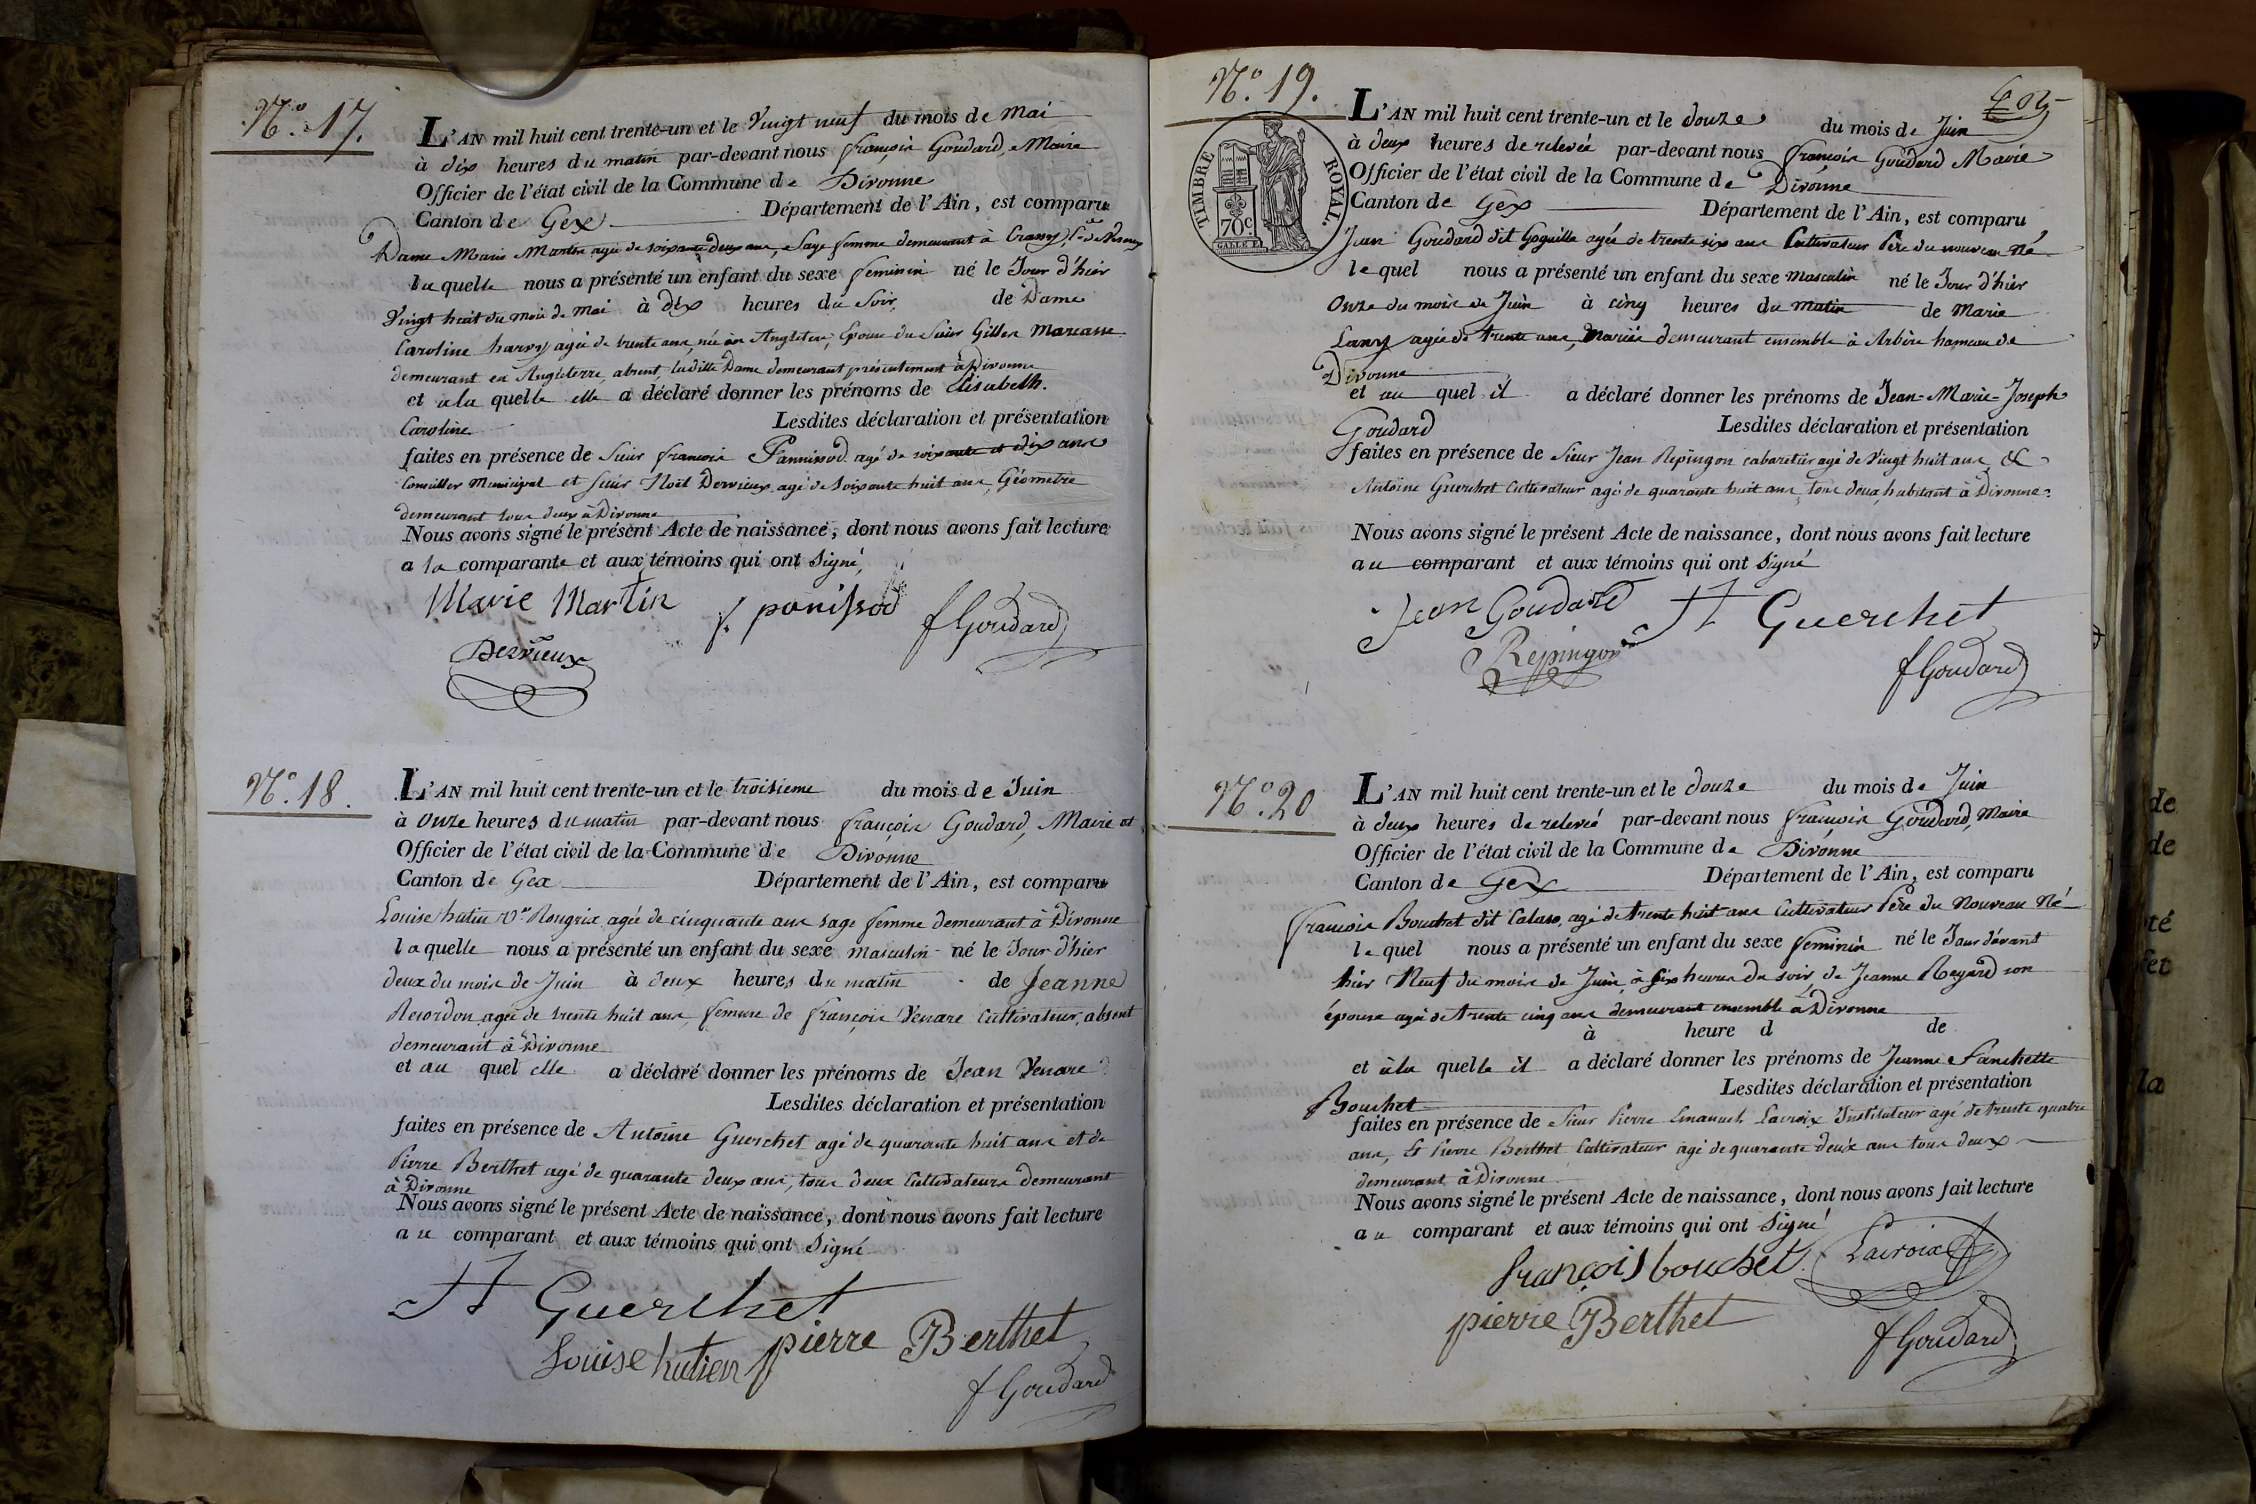 N.º 17.
L'AN mil huit cent trente-un et le Vingt neuf du mois de Mai
à dix heures du matin par-devant nous françois Goudard, Maire
Officier de l'état civil de la Commune de Divonne
Canton de Gex Département de l'Ain, est comparu
Dame Marie Martin agée de soixante deux ans, Sage femme demeurant à Crassy,
la quelle nous a présenté un enfant du sexe feminin né le Jour d'hier
Vingt huit du mois de Mai à dix heures du Soir, de Dame
Caroline harvy agée de trente ans, née en Angleterre, Epouse du Sieur Gilles Marcasse
demeurant en Angleterre, absent, ladille Dame demeurant présentement à Divonne
et a la quelle elle a déclaré donner les prénoms de Elisabeth.
Caroline Lesdites déclaration et présentation
faites en présence de Sieur françois Pannissod agé de soixante et dix ans
Conseiller Municipal et Sieur Noël Dervieux agé de Soixante huit ans, Géometre
demeurant tous deux à Divonne
Nous avons signé le présent Acte de naissance, dont nous avons fait lecture
a la comparante et aux témoins qui ont Signé,
Marie Martin f. panissod fGoudard
Dervieux
N.º 18.
L'AN mil huit cent trente-un et le troisieme du mois de Juin
à Onze heures du matin par-devant nous françois Goudard, Maire et
Officier de l'état civil de la Commune de Divonne
Canton de Gex Département de l'Ain, est comparu
Louise hutin Vve Rougrix agée de cinquante ans sage femme demeurant à Divonne
la quelle nous a présenté un enfant du sexe masculin né le Jour d'hier
deux du mois de Juin à deux heures du matin de Jeanne
Recordon agée de trente huit ans, femme de françois Venare Cultivateur, absent
demeurant à Divonne
et au quel elle a déclaré donner les prénoms de Jean Venare
Lesdites déclaration et présentation
faites en présence de Antoine Guerchet agé de quarante huit ans et de
Pierre Berthet agé de quarante deux ans, tous deux Cultivateurs demeurant
à Divonne
Nous avons signé le présent Acte de naissance, dont nous avons fait lecture
au comparant et aux témoins qui ont Signé
At Guerchet
Louise hutien pierre Berthet
f Goudard
N.º 19.
TIMBRE ROYAL.
70c
L'AN mil huit cent trente-un et le douze du mois de Juin
à deux heures de relevée par-devant nous françois Goudard Maire
Officier de l'état civil de la Commune de Divonne
Canton de Gex Département de l'Ain, est comparu
Jean Goudard dit Goguille agée de trente six ans Cultivateur Père du nouveau Né
le quel nous a présenté un enfant du sexe masculin né le Jour d'hier
Onze du mois de Juin à cinq heures du matin de Marie
Lany agée de trente ans, Mariés demeurant ensemble à Arbère hameau de
Divonne
et au quel il a déclaré donner les prénoms de Jean-Marie-Joseph
Goudard Lesdites déclaration et présentation
faites en présence de Sieur Jean Repingon cabaretier agé de Vingt huit ans, &
Antoine Guerchet Cultivateur agé de quarante huit ans, tous deux habitant à Divonne
Nous avons signé le présent Acte de naissance, dont nous avons fait lecture
au comparant et aux témoins qui ont Signé
Jean Goudard At Guerchet
Repingon
fGoudard
N.º 20
L'AN mil huit cent trente-un et le douze du mois de Juin
à deux heures de relevée par-devant nous françois Goudard, Maire
Officier de l'état civil de la Commune de Divonne
Canton de Gex Département de l'Ain, est comparu
françois Bouchet dit Calaso, agé de trente huit ans Cultivateur Père du Nouveau Né
le quel nous a présenté un enfant du sexe feminin né le Jour d'avant
hier Neuf du mois de Juin à six heures du soir, de Jeanne Regard son
épouse agée de trente cinq ans demeurant ensemble à Divonne
à heure d de
et à la quelle il a déclaré donner les prénoms de Jeanne Fanchette
Bouchet Lesdites déclaration et présentation
faites en présence de Sieur Pierre Emanuel Lacroix Instituteur agé de trente quatre
ans, Et Pierre Berthet Cultivateur agé de quarante deux ans tous deux
demeurant à Divonne
Nous avons signé le présent Acte de naissance, dont nous avons fait lecture
au comparant et aux témoins qui ont Signé
françois bouchet Lacroix
pierre Berthet
fGoudard